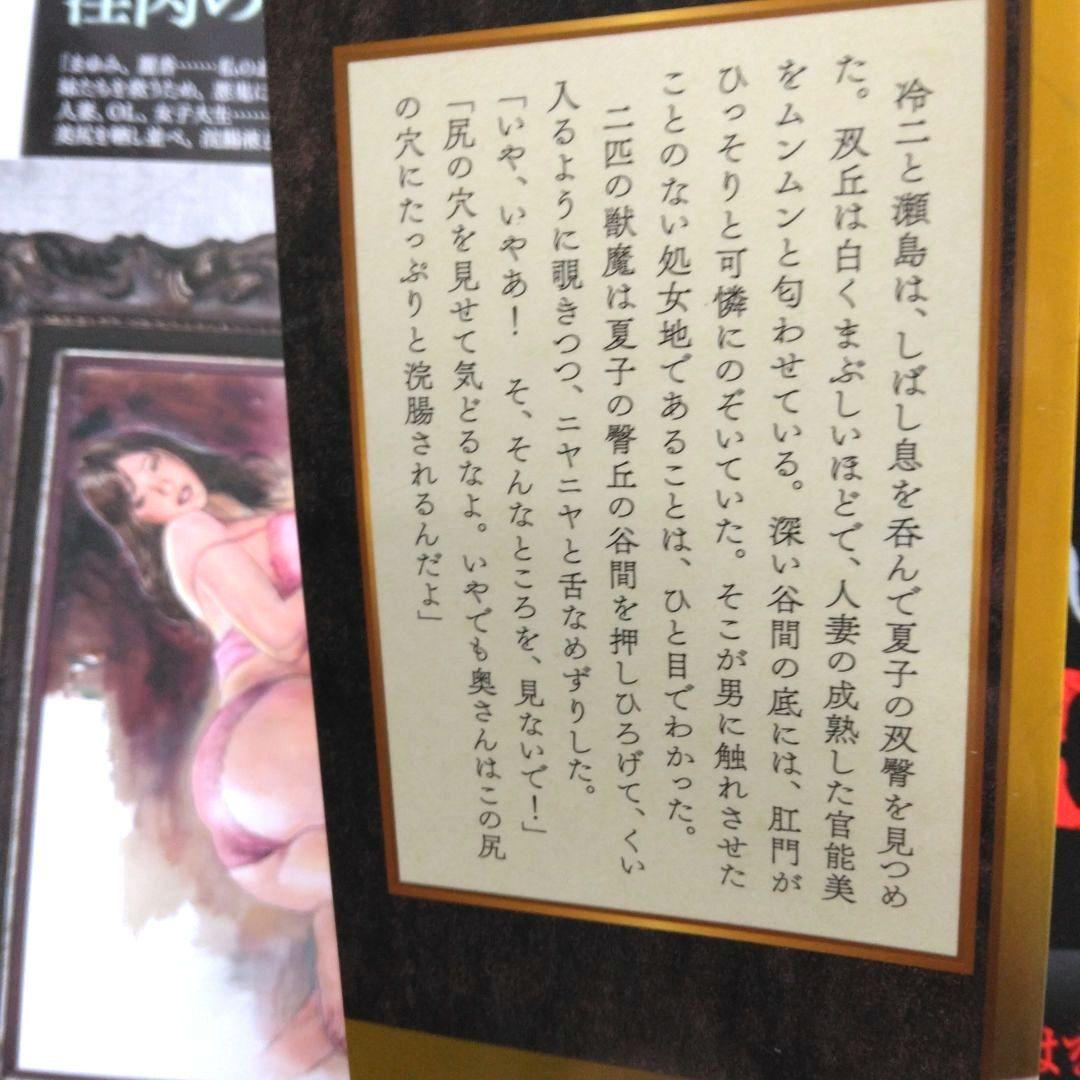 冷二と瀬島は、しばし息を呑んで夏子の双臀を見つめ
た。双丘は白くまぶしいほどで、人妻の成熟した官能美
をムンムンと匂わせている。深い谷間の底には、肛門が
ひっそりと可憐にのぞいていた。そこが男に触れさせた
ことのない処女地であることは、ひと目でわかった。
二匹の獣魔は夏子の臀丘の谷間を押しひろげて、くい
入るように覗きつつ、ニヤニヤと舌なめずりした。
「いや、いやあ！　そ、そんなところを、見ないで！」
「尻の穴を見せて気どるなよ。いやでも奥さんはこの尻
の穴にたっぷりと浣腸されるんだよ」
人妻、OL、女子大生……